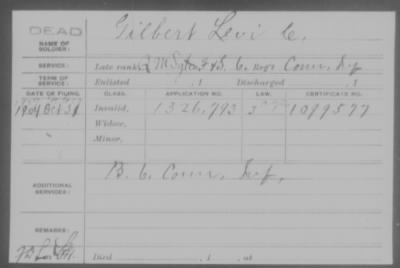 DEAD
Gilbert Levi C.
NAME OF SOLDIER:
SERVICE: Late rank, Q M Sgt. F & S. 6, Reg't Conn, Inf
TERM OF SERVICE: Enlisted , 1 Discharged , 1
DATE OF FILING. CLASS. APPLICATION NO. LAW. CERTIFICATE NO.
1904 Oct 31 Invalid, 1326,793 1099577
Widow,
Minor,
B. 6 Conn, Inf,
ADDITIONAL SERVICES:
REMARKS:
Died , 1 , at